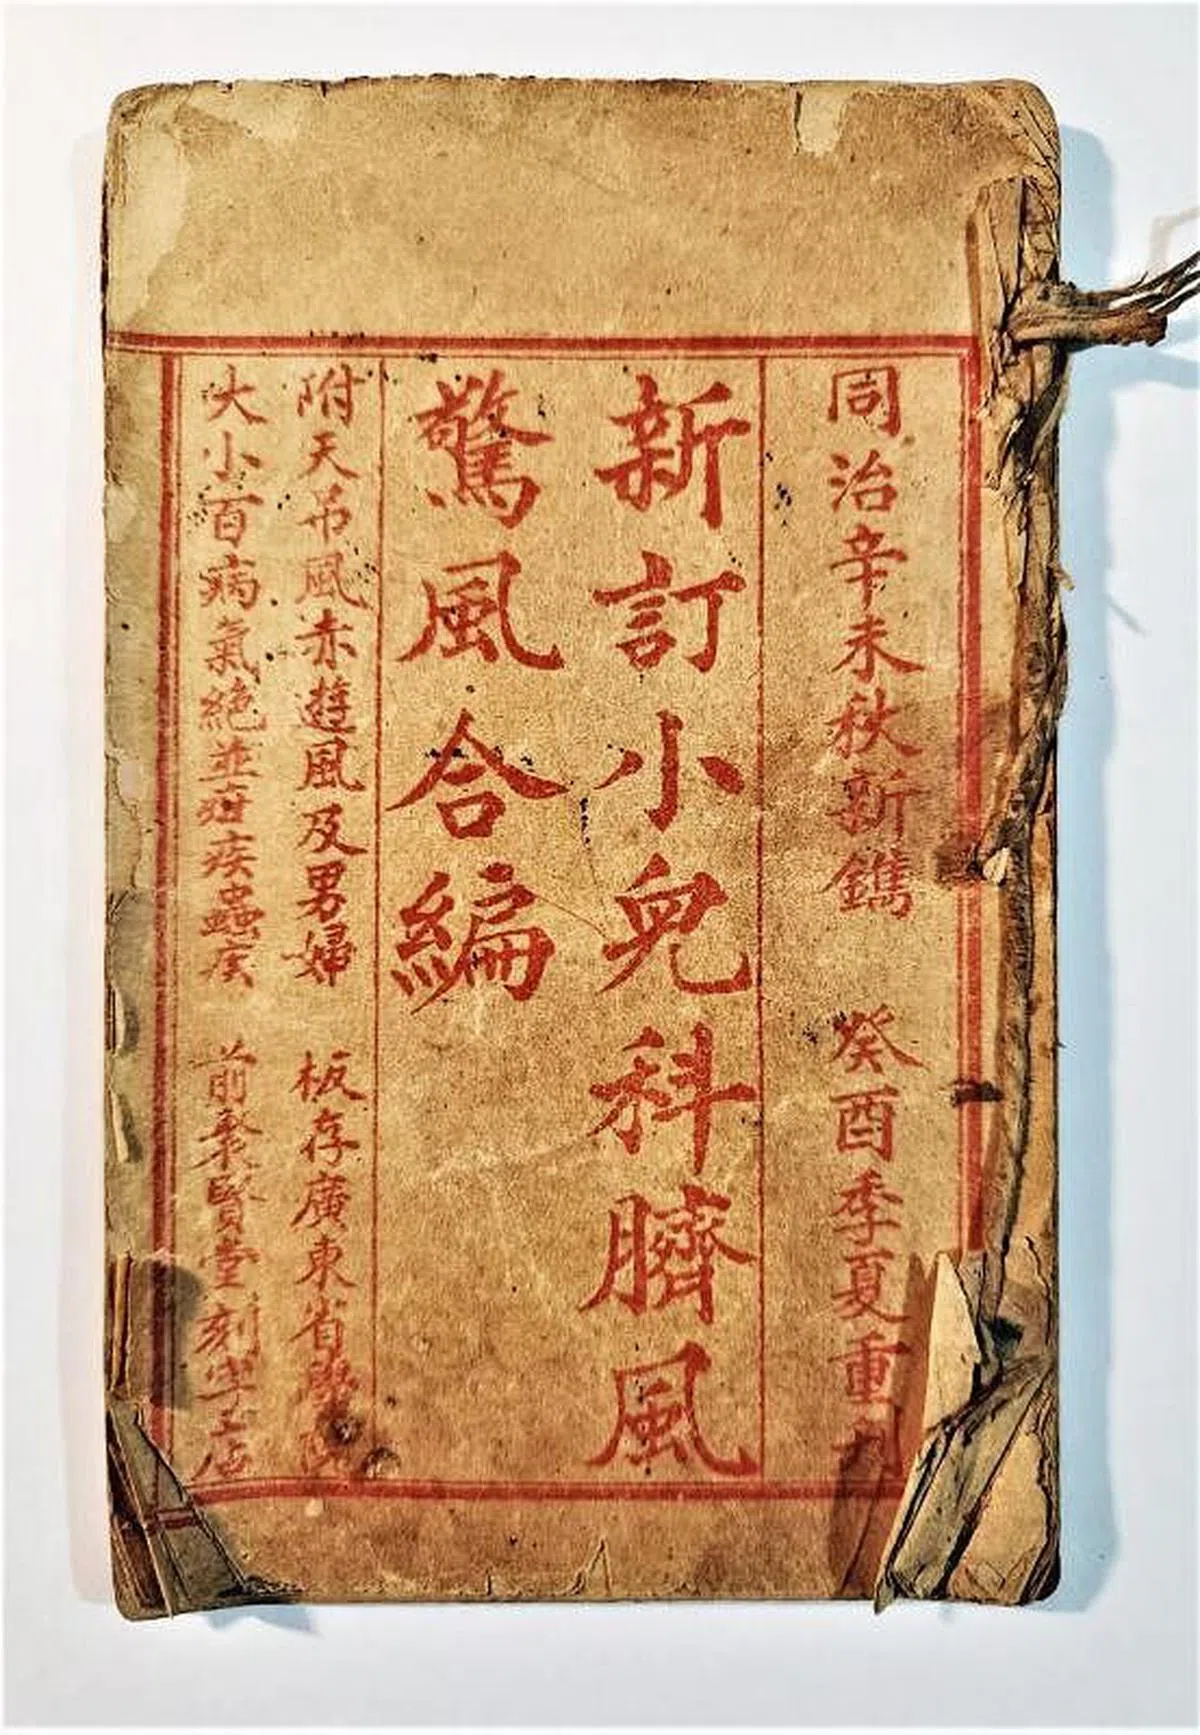 同治辛未秋新鐫 癸酉季夏重刊
新訂小兒科臍風
驚風合編
附天吊風赤遊風及男婦 板存廣東省學院
大小百病氣絕並疳疾蟲疾 前聚賢堂刻字